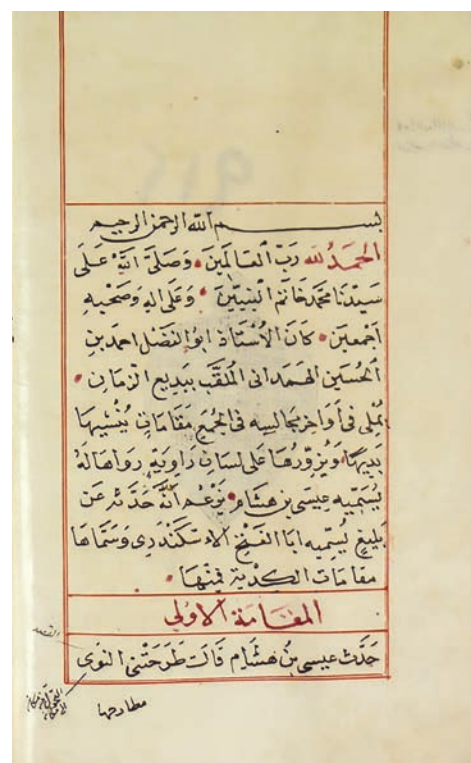 بسم الله الرحمن الرحيم
الحمد لله رب العالمين وصلى الله على
سيدنا محمد خاتم النبيين وعلى اله وصحبه
اجمعين كان الأستاذ ابو الفضل احمد بن
الحسين الهمدانى الملقب ببديع الزمان
يملى فى أواخر مجالسه فى الجمع مقامات ينشيها
بديها ويزورها على لسان راوية رواها له
يسميه عيسى بن هشام يزعم أنه حدثه عن
بليغ يسميه ابا الفتح الاسكندرى وسماها
مقامات الكدية فمنها
المقامة الاولى
حدث عيسى بن هشام قالت طرحتنى النوى
مطارحها